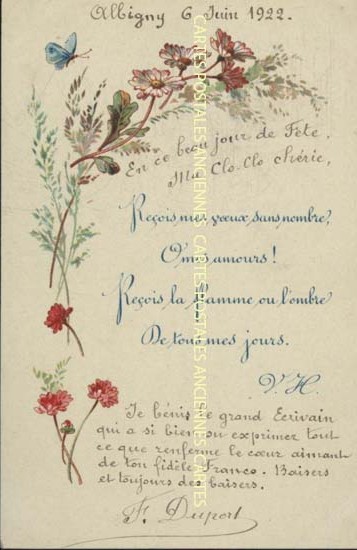 Albigny 6 Juin 1922.
En ce beau jour de Fête,
Ma Clo-Clo Chérie,
Reçois mes vœux sans nombre,
O mes amours!
Reçois la flamme ou l'ombre
De tous mes jours.
V. H.
Je bénis le grand Ecrivain
qui a si bien pu exprimer tout
ce que renferme le cœur aimant
de ton fidèle Franco. Baisers
et toujours des baisers.
F. Duport
CARTES POSTALES ANCIENNES CARTES POSTALES ANCIENNES CARTES